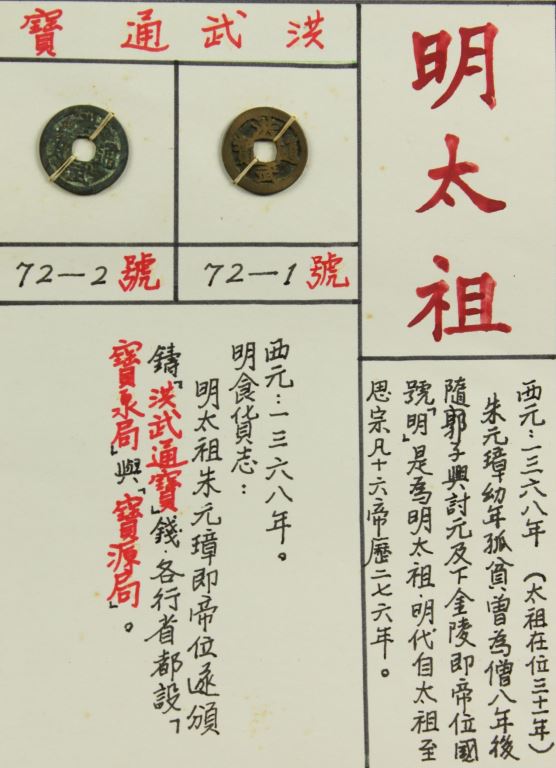 明太祖
西元：一三六八年（太祖在位三十一年）
朱元璋幼年孤貧曾為僧八年後
隨郭子興討元及下金陵即帝位國
號「明」是為明太祖·明代自太祖至
思宗凡十六帝歷二七六年。
洪武通寶
72－1號
72－2號
西元：一三六八年。
明食貨志：
明太祖朱元璋即帝位遂頒
鑄「洪武通寶」錢·各行省都設「
寶泉局」與「寶源局」。